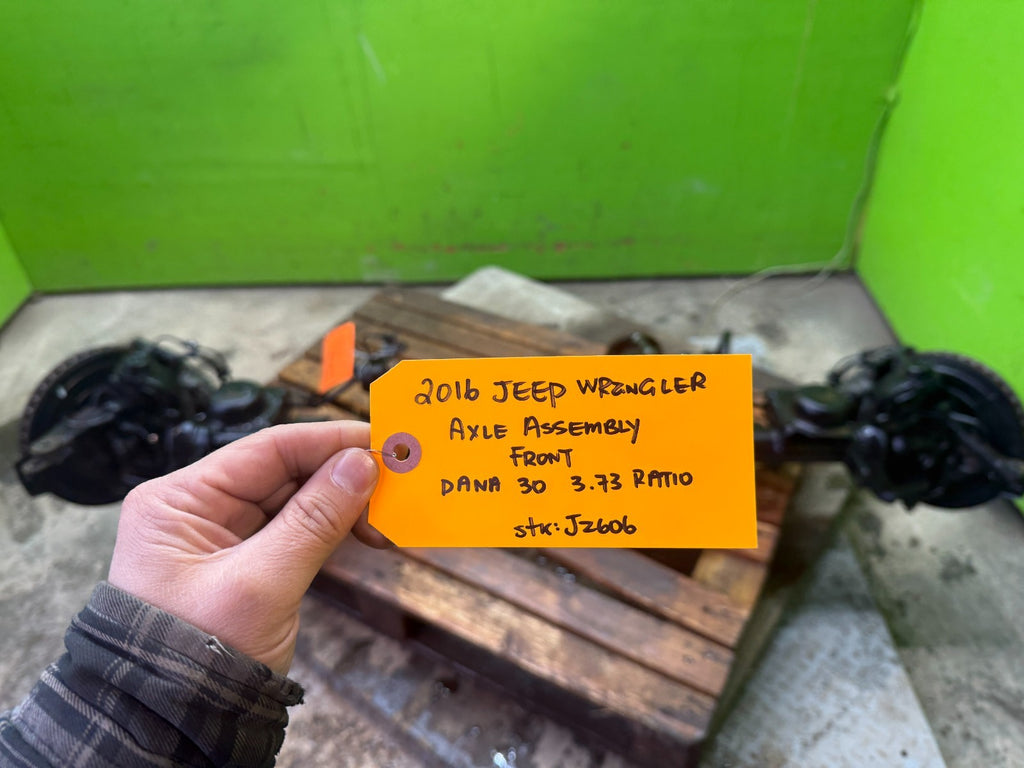 2016 JEEP WRANGLER
AXLE ASSEMBLY
FRONT
DANA 30 3.73 RATIO
stk: J2606